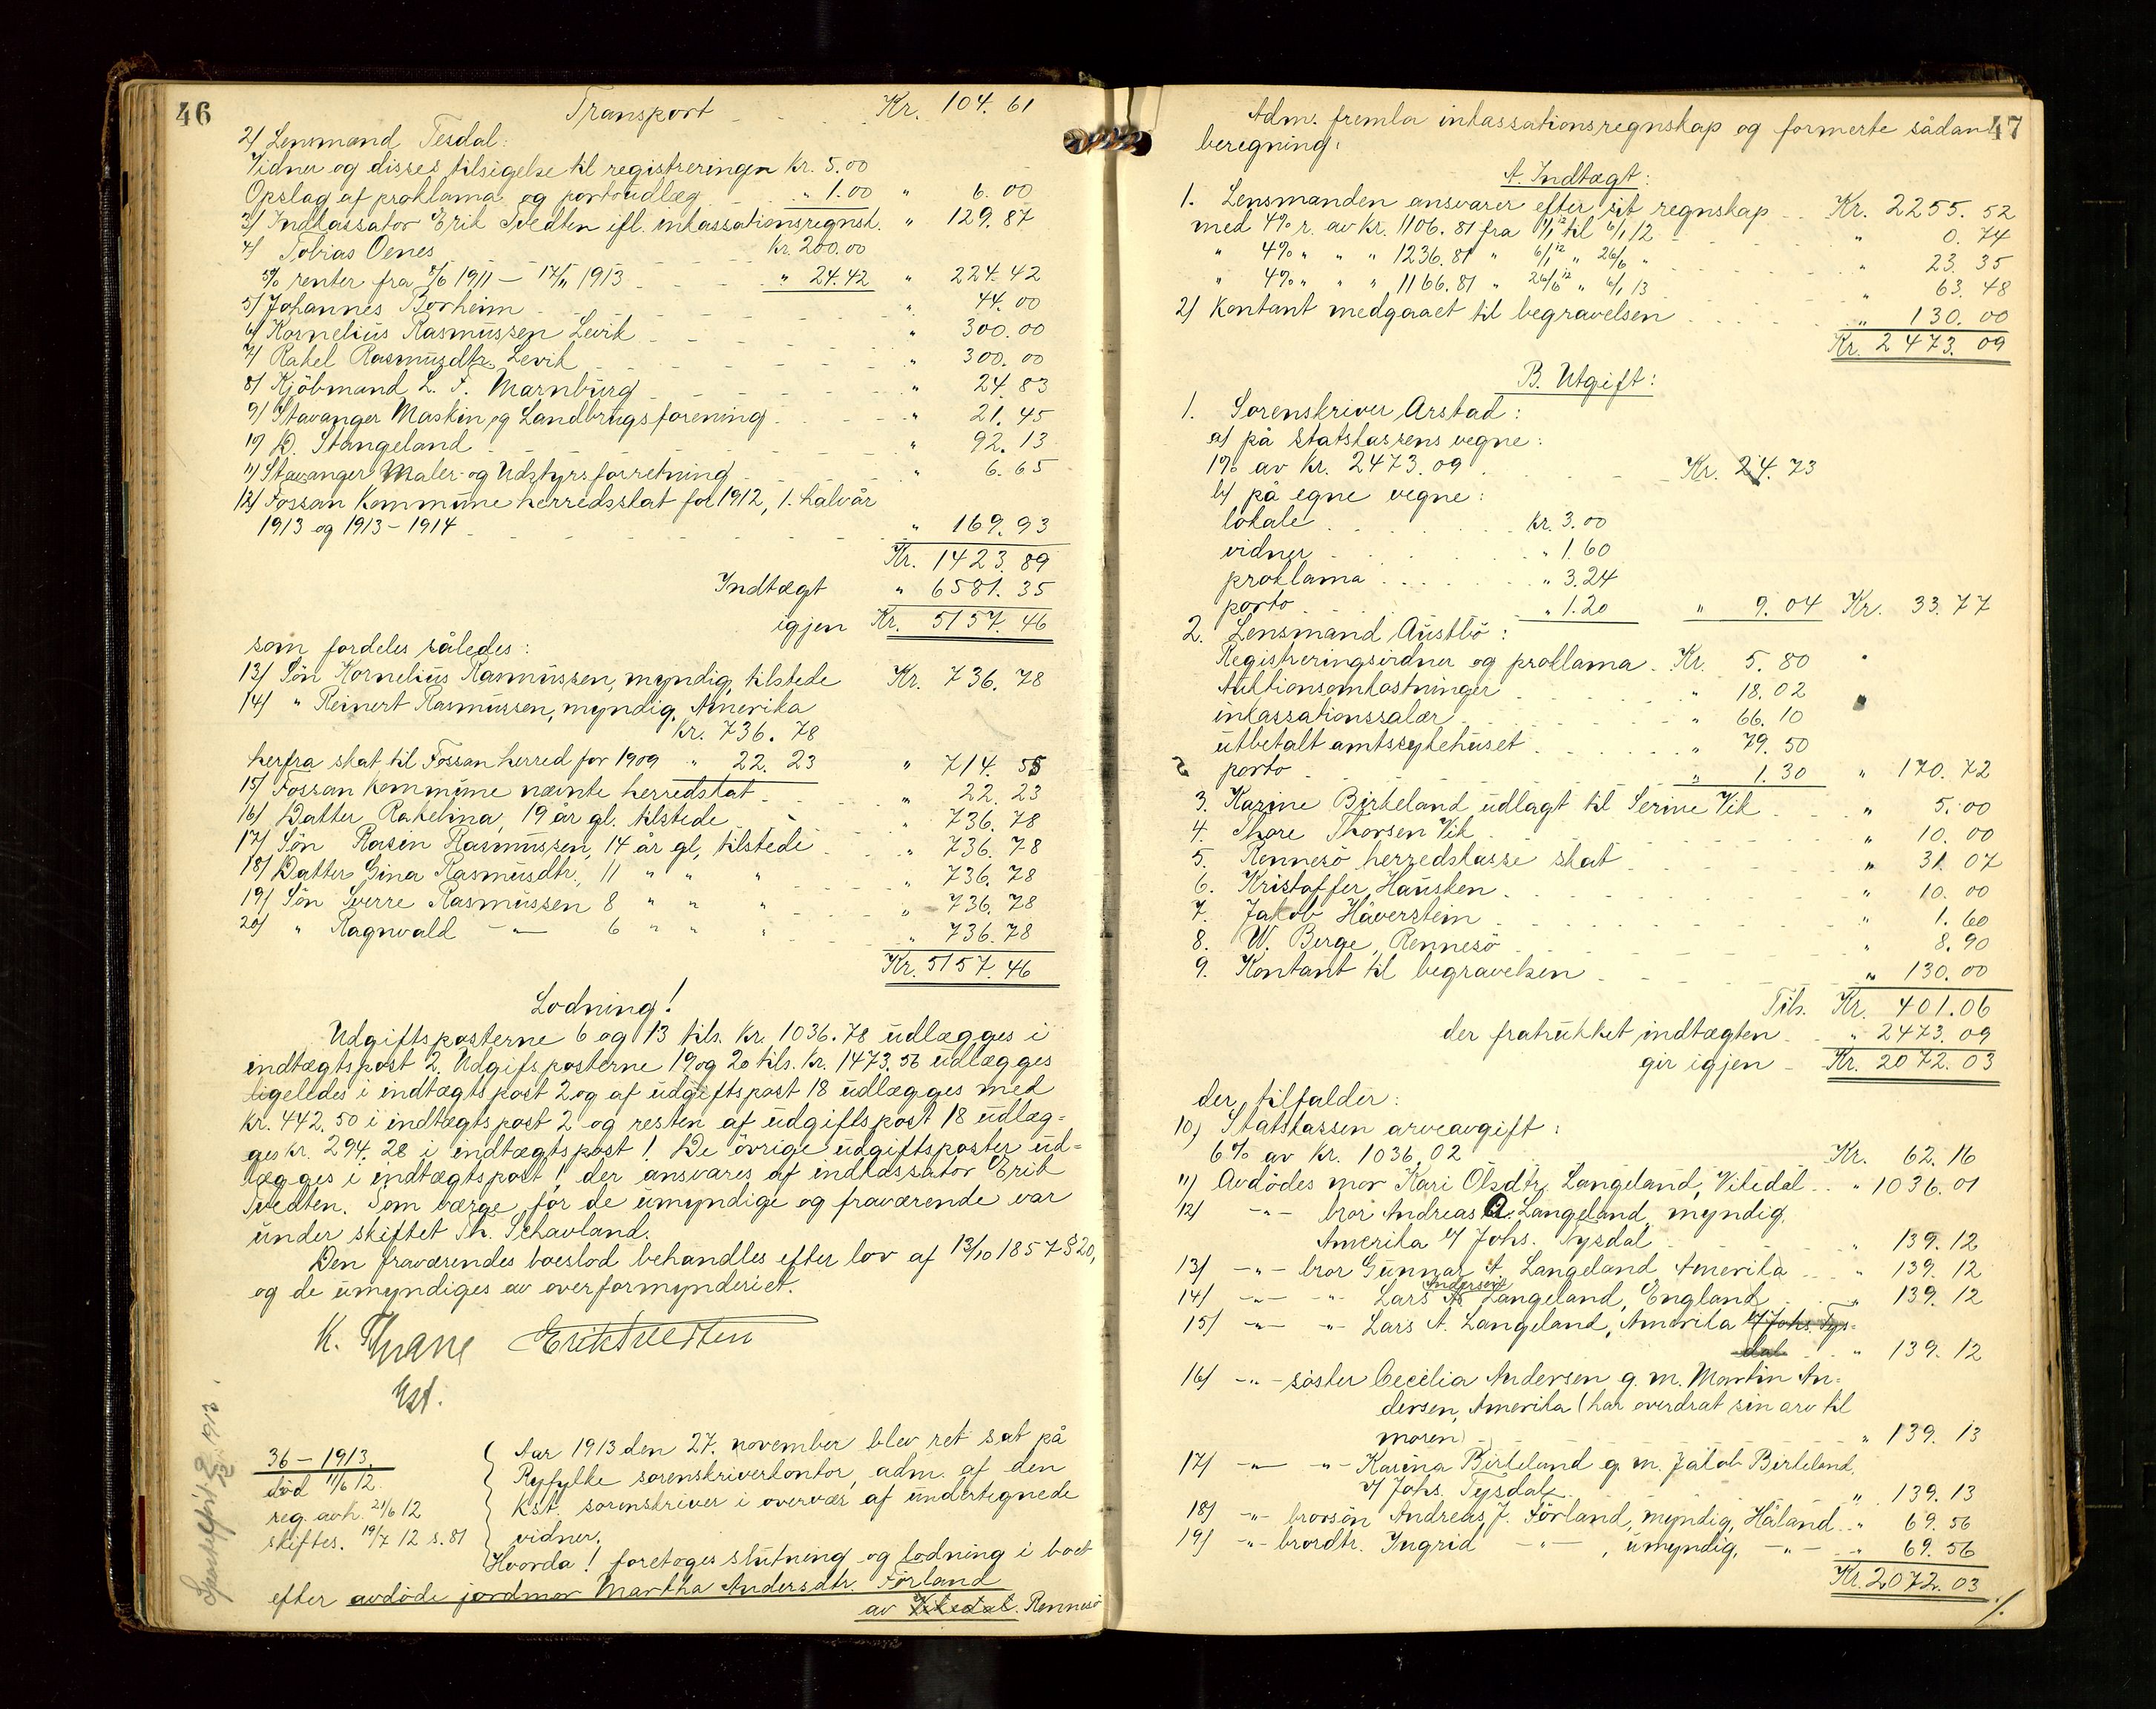 46
Transport Kr. 104.61
2/ Lensmand Tesdal:
Vidner og disses tilsigelse til registreringen kr. 5.00
Opslag af proklama og portoudlæg " 1.00 " 6.00
3/ Indkassator Erik Tvedten ifl. inkassationsregnsk. " 129.87
4/ Tobias Oenes kr. 200.00
5% renter fra 8/6 1911 - 17/11 1913 " 24.42 " 224.42
5/ Johannes Borheim " 44.00
6/ Kornelius Rasmussen Levik " 300.00
7/ Rakel Rasmusdtr. Levik " 300.00
8/ Kjöbmand L. T. Marnburg " 24.83
9/ Stavanger Maskin og Landbrugsforening " 21.45
10/ D. Stangeland " 92.13
11/ Stavanger Maler- og Udstyrsforretning " 6.65
12/ Fossan Kommune herredsskat for 1912, 1. halvår
1913 og 1913-1914 " 169.93
Kr. 1423.89
Indtægt " 6581.35
igjen Kr. 5157.46
som fordeles således:
13/ Sön Kornelius Rasmussen, myndig, tilstede Kr. 736.78
14/ " Reinert Rasmussen, myndig, Amerika
kr. 736.78
herfra skat til Fossan herred for 1909 " 22.23 " 714.55
15/ Fossan kommune nævnte herredskat " 22.23
16/ Datter Rakelina, 19 år gl. tilstede " 736.78
17/ Sön Rasin Rasmussen, 14 år gl, tilstede " 736.78
18/ Datter Gina Rasmusdtr., 11 " " " " 736.78
19/ Sön Sverre Rasmussen 8 " " " " 736.78
20/ " Ragnvald -"- 6 " " " " 736.78
Kr. 5157.46
Lodning!
Udgiftsposterne 6 og 13 tils. kr. 1036.78 udlægges i
indtægtspost 2. Udgifsposterne 19 og 20 tils. kr. 1473.56 udlægges
ligeledes i indtægtspost 2 og af udgiftspost 18 udlægges med
kr. 442.50 i indtægtspost 2 og resten af udgiftspost 18 udlæg=
ges kr. 294.28 i indtægtspost 1. De övrige udgiftsposter ud=
lægges i indtægtspost 1 der ansvares af indkassator Erik
Tvedten. Som værge for de umyndige og fraværende var
under skiftet Th. Schavland.
Den fraværendes boeslod behandles efter lov af 13/10 1857 § 20,
og de umyndiges av overformynderiet.
K. Thrane Erik Tvedten
Kst.
36 - 1913.
död 11/6 12.
reg. avh. 21/6 12
skiftes. 19/7 12 s. 81
Aar 1913 den 27. november blev ret sat på
Ryfylke sorenskriverkontor, adm. af den
kst. sorenskriver i overvær af undertegnede
vidner.
Hvorda! foretoges slutning og lodning i boet
efter avdöde jordmor Martha Andersdtr. Förland
av Vikedal. Rennesö
47
Adm. fremla inkassationsregnskap og formerte sådan
beregning:
A. Indtægt:
1. Lensmanden ansvarer efter sit regnskap Kr. 2255.52
med 4% r. av kr. 1106.81 fra 1/1 12 til 6/1 12 " 0.74
" 4% " " " 1236.81 " 6/1 12 " 26/6 " " 23.35
" 4% " " " 1166.81 " 26/6 12 " 6/1 13 " 63.48
2/ Kontant medgaaet til begravelsen " 130.00
Kr. 2473.09
B. Utgift:
1. Sorenskriver Arstad:
a/ på statskassens vegne:
1% av kr. 2473.09 Kr. 24.73
b/ på egne vegne:
lokale kr. 3.00
vidner " 1.60
proklama " 3.24
porto " 1.20 " 9.04 Kr. 33.77
2. Lensmand Austbö:
Registreringsvidner og proklama Kr. 5.80
Auktionsomkostninger " 18.02
inkassationssalær " 66.10
utbetalt amtssykehuset " 79.50
porto " 1.30 " 170.72
3. Karine Birkeland udlagt til Serine Vik " 5.00
4. Thore Thorsen Vik " 10.00
5. Rennesö herredskasse skat " 31.07
6. Kristoffer Hausken " 10.00
7. Jakob Håverstein " 1.60
8. W. Berge, Rennesö " 8.90
9. Kontant til begravelsen " 130.00
Tils. Kr. 401.06
der fratrukket indtægten " 2473.09
gir igjen Kr. 2072.03
der tilfalder:
10) Statskassen arveavgift:
6% av kr. 1036.02 Kr. 62.16
11) Avdödes mor Kari Olsdtr. Langeland, Vikedal " 1036.01
12) -"- bror Andreas A. Langeland, myndig,
Amerika v/ Johs. Tysdal " 139.12
13/ -"- bror Gunnar A. Langeland Amerika " 139.12
14/ -"- -"- Lars Andersen Langeland, England " 139.12
15/ -"- -"- Lars A. Langeland, Amerika v/ Johs. Tys=
dal " 139.12
16/ -"- söster Cecilia Andersen g. m. Martin An=
dersen, Amerika (har overdrat sin arv til
moren) " 139.13
17/ -"- -"- Karina Birkeland g. m. Jakob Birkeland,
v/ Johs. Tysdal " 139.13
18/ -"- brorsön Andreas J. Förland, myndig, Håland " 69.56
19/ -"- brordtr. Ingrid -"-, umyndig, -"- " 69.56
Kr. 2072.03